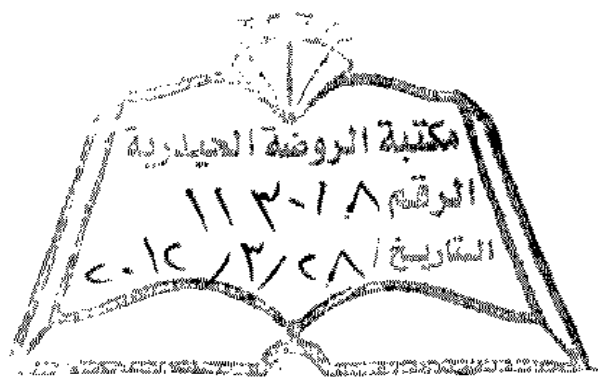 مكتبة الروضة الحيدرية
الرقم ١١٣٠١٨
التاريخ / ٢٨/٣/٢٠١٢